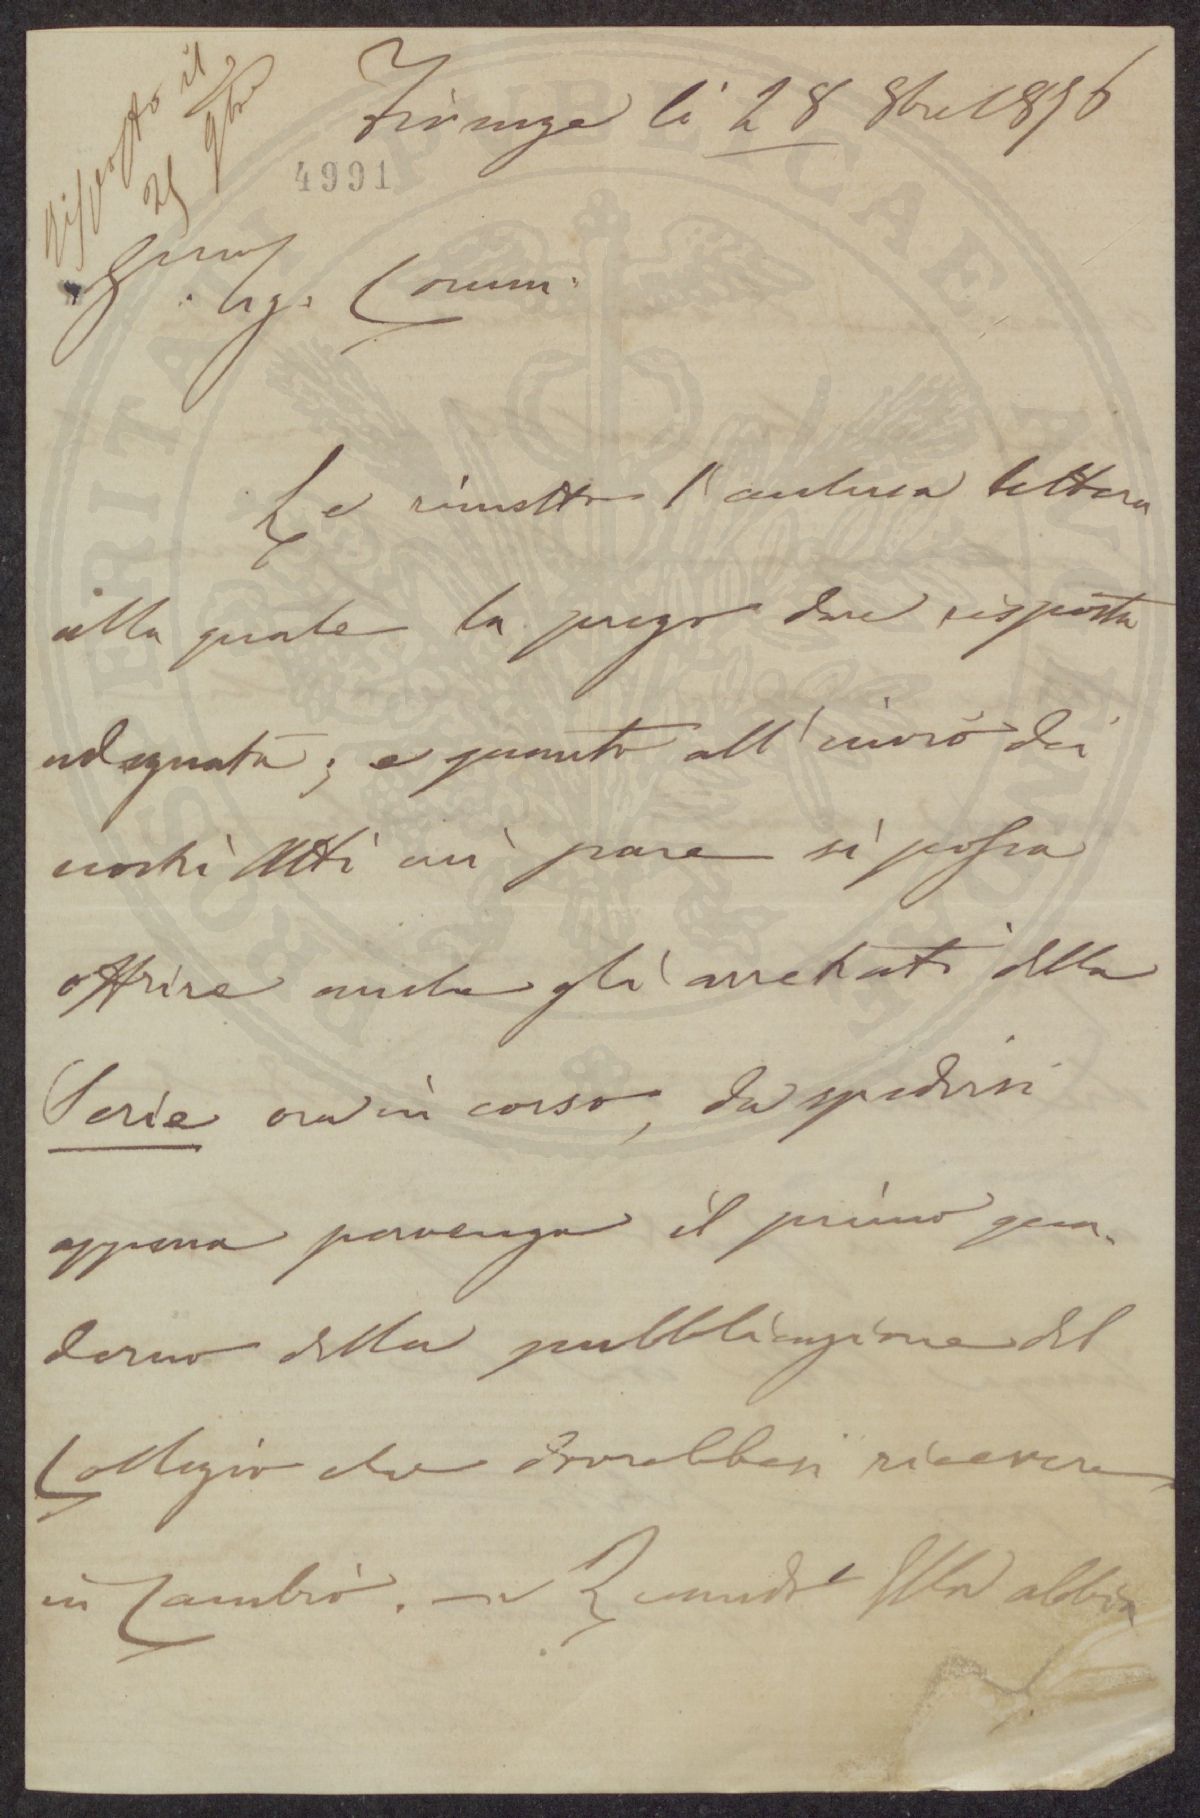 Risposto il
25 9bre
Firenze li 28 8bre 1896
4991
Gen.mo
Sig. Comm.
Le rimetto l'acclusa lettera
alla quale la prego dare risposta
adeguata; e quanto all'invio dei
nostri Atti mi pare si possa
offrire anche gli arretrati della
Serie ora in corso, da spedirsi
appena pervenga il primo qua-
derno della pubblicazione del
Collegio che dovrebbesi ricevere
in Cambio. — Quando Ella abbia
PROSPERITATI PUBLICAE AUGENDAE